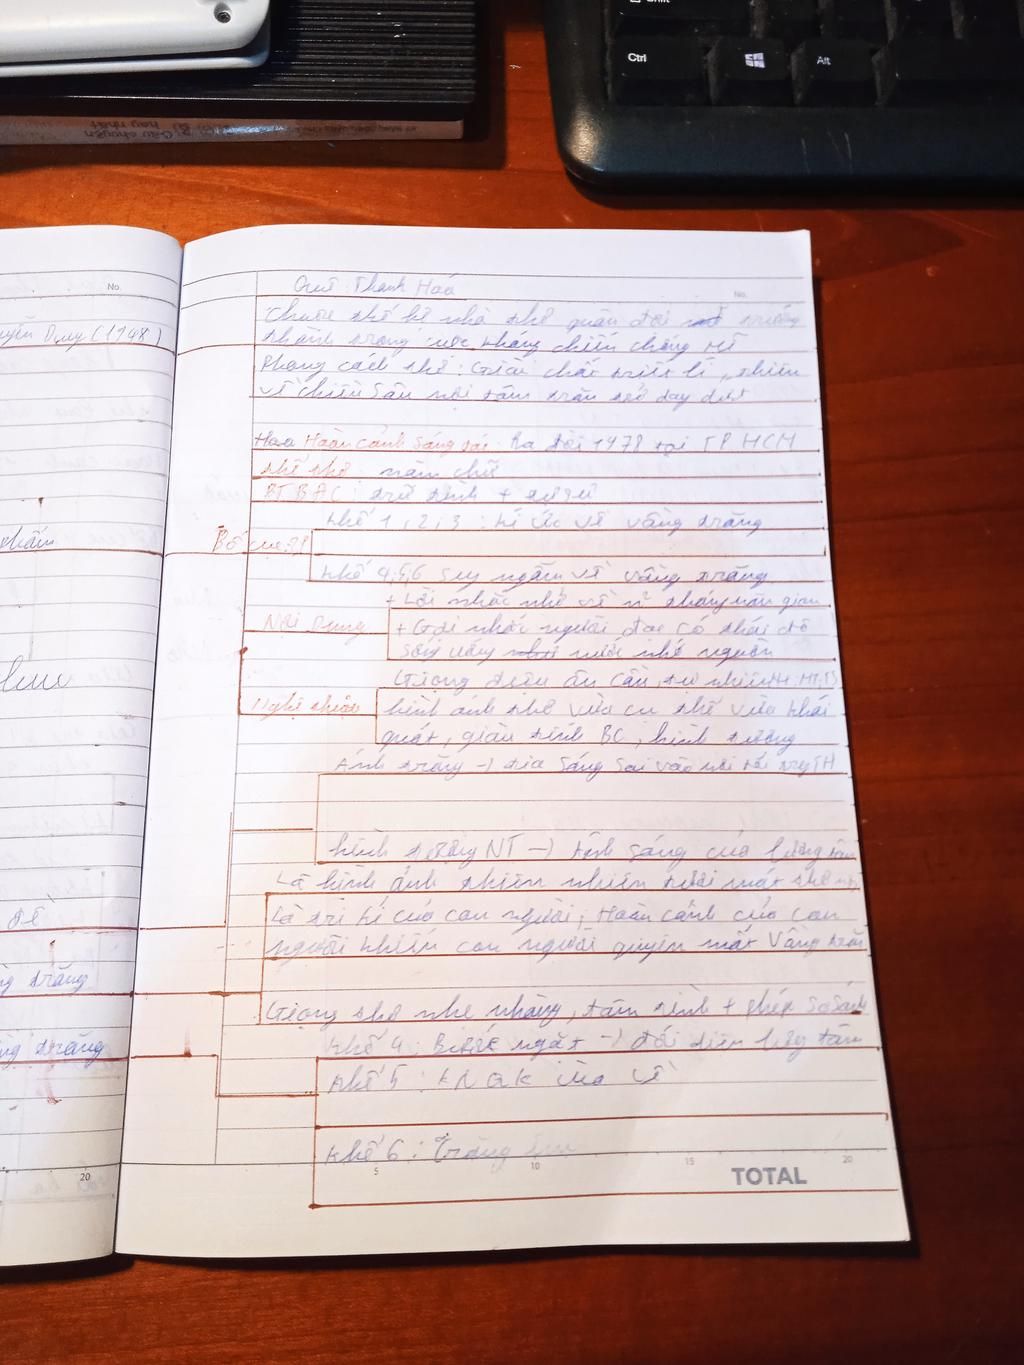 Ctrl
Alt
No.
No.
Duy (1948)
Quê: Thanh Hoá
thế hệ nhà thơ quân đội trưởng
thành trong cuộc kháng chiến chống Mĩ
Phong cách thơ: Giàu chất triết lí, thiên
về chiều sâu nội tâm trăn trở day dứt
Hoa Hoàn cảnh sáng tác: Ra đời 1978 tại TP HCM
thể thơ: năm chữ
PTBĐC: trữ tình + tự sự
khổ 1, 2, 3: kí ức về vầng trăng
Bố cục: 2P
khổ 4,5,6 suy ngẫm về vầng trăng
thấm
+ Lời nhắc nhở về năm tháng gian
Nội Dung
+ Gợi nhắc người đọc có thái độ
sống uống nước nhớ nguồn
Giọng điệu ân cần, tự nhiên
Nghệ thuật
hình ảnh thơ vừa cụ thể vừa khái
quát, giàu tính BC, hình tượng
Ánh trăng -> tia sáng soi vào nơi tối
hình tượng NT -> ánh sáng của lương tâm
Là hình ảnh thiên nhiên tươi mát
đề
Là tri kỉ của con người, Hoàn cảnh của con
người khiến con người quyên mất Vầng trăn
trăng
Giọng thơ nhẹ nhàng, tâm tình + phép so sánh
trăng
khổ 4: ngặt -> đối diện
khổ 5: ùa về
khổ 6: Trăng
20
5
10
15
20
TOTAL